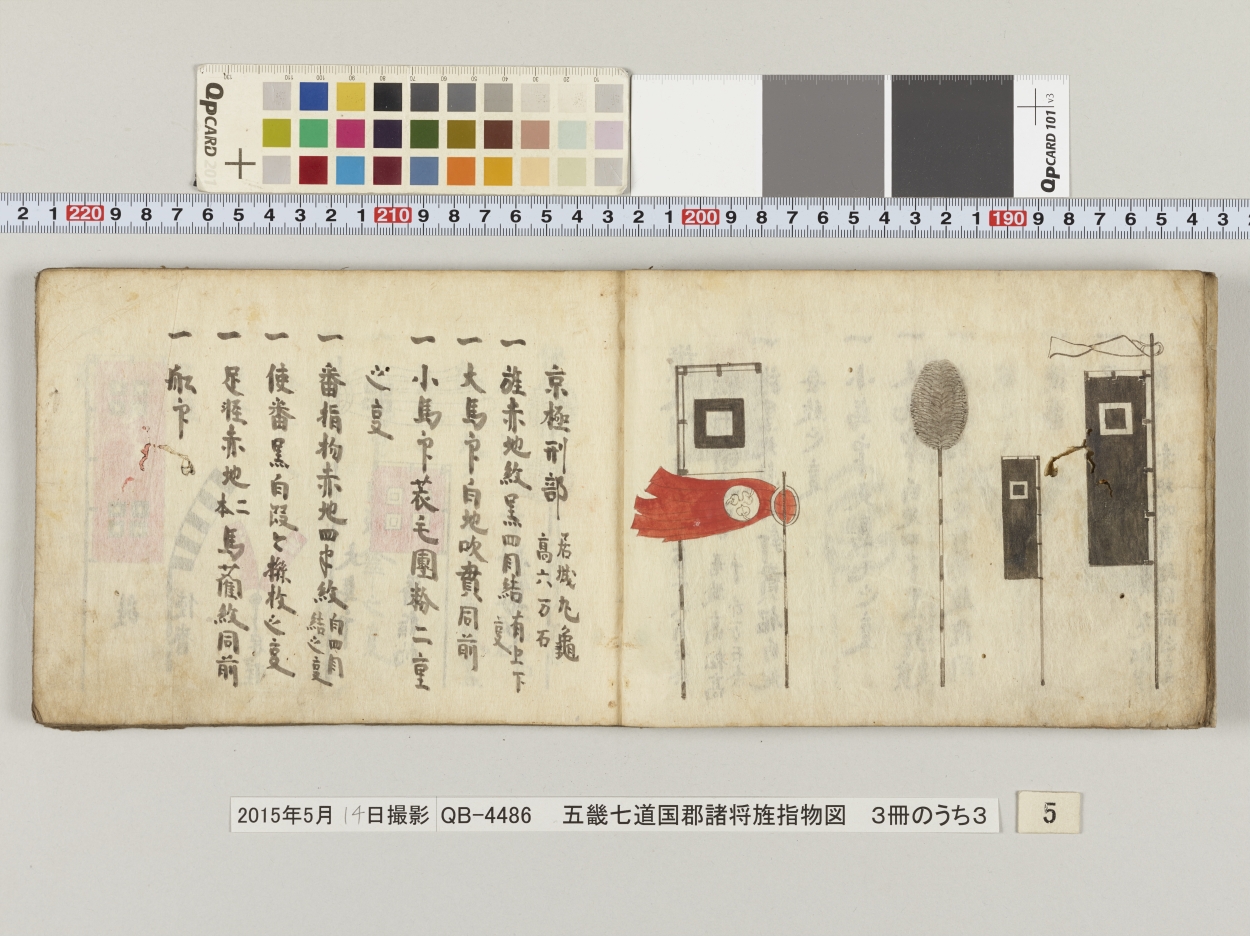 QPCARD 201
QPCARD 101 v3
2 1 220 9 8 7 6 5 4 3 2 1 210 9 8 7 6 5 4 3 2 1 200 9 8 7 6 5 4 3 2 1 190 9 8 7 6 5 4 3
京極刑部 居城丸亀
高六万石
一 旌赤地紋黒四目結有上下
一 大馬印白地吹貫同前
一 小馬印蓑毛團粉二重
一 番指物赤地四半紋白四目
結之
一 使番黒白段々
一 足軽赤地二本馬藺紋同前
一 船印
2015年5月14日撮影 QB-4486 五畿七道国郡諸将旌指物図 3冊のうち3
5